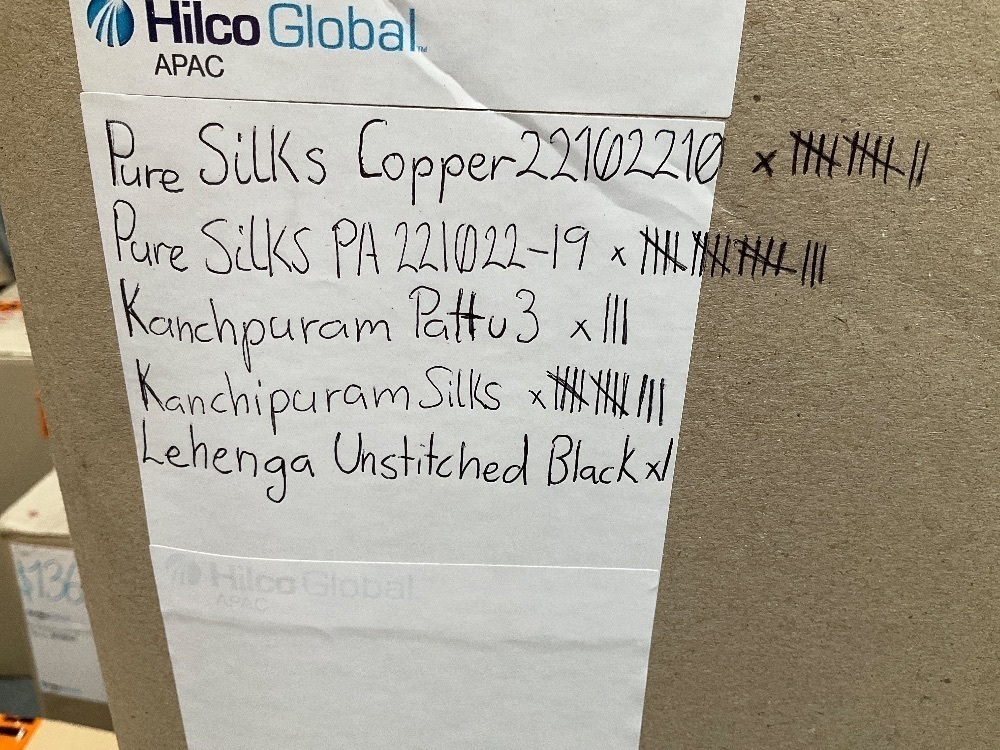 Hilco Global™
APAC
Pure Silks Copper 22102210 x 卌 卌 ||
Pure Silks PA 221022-19 x 卌 卌 卌 |||
Kanchpuram Pattu 3 x |||
Kanchipuram Silks x 卌 卌 |||
Lehenga Unstitched Black x |
Hilco Global
APAC
$136